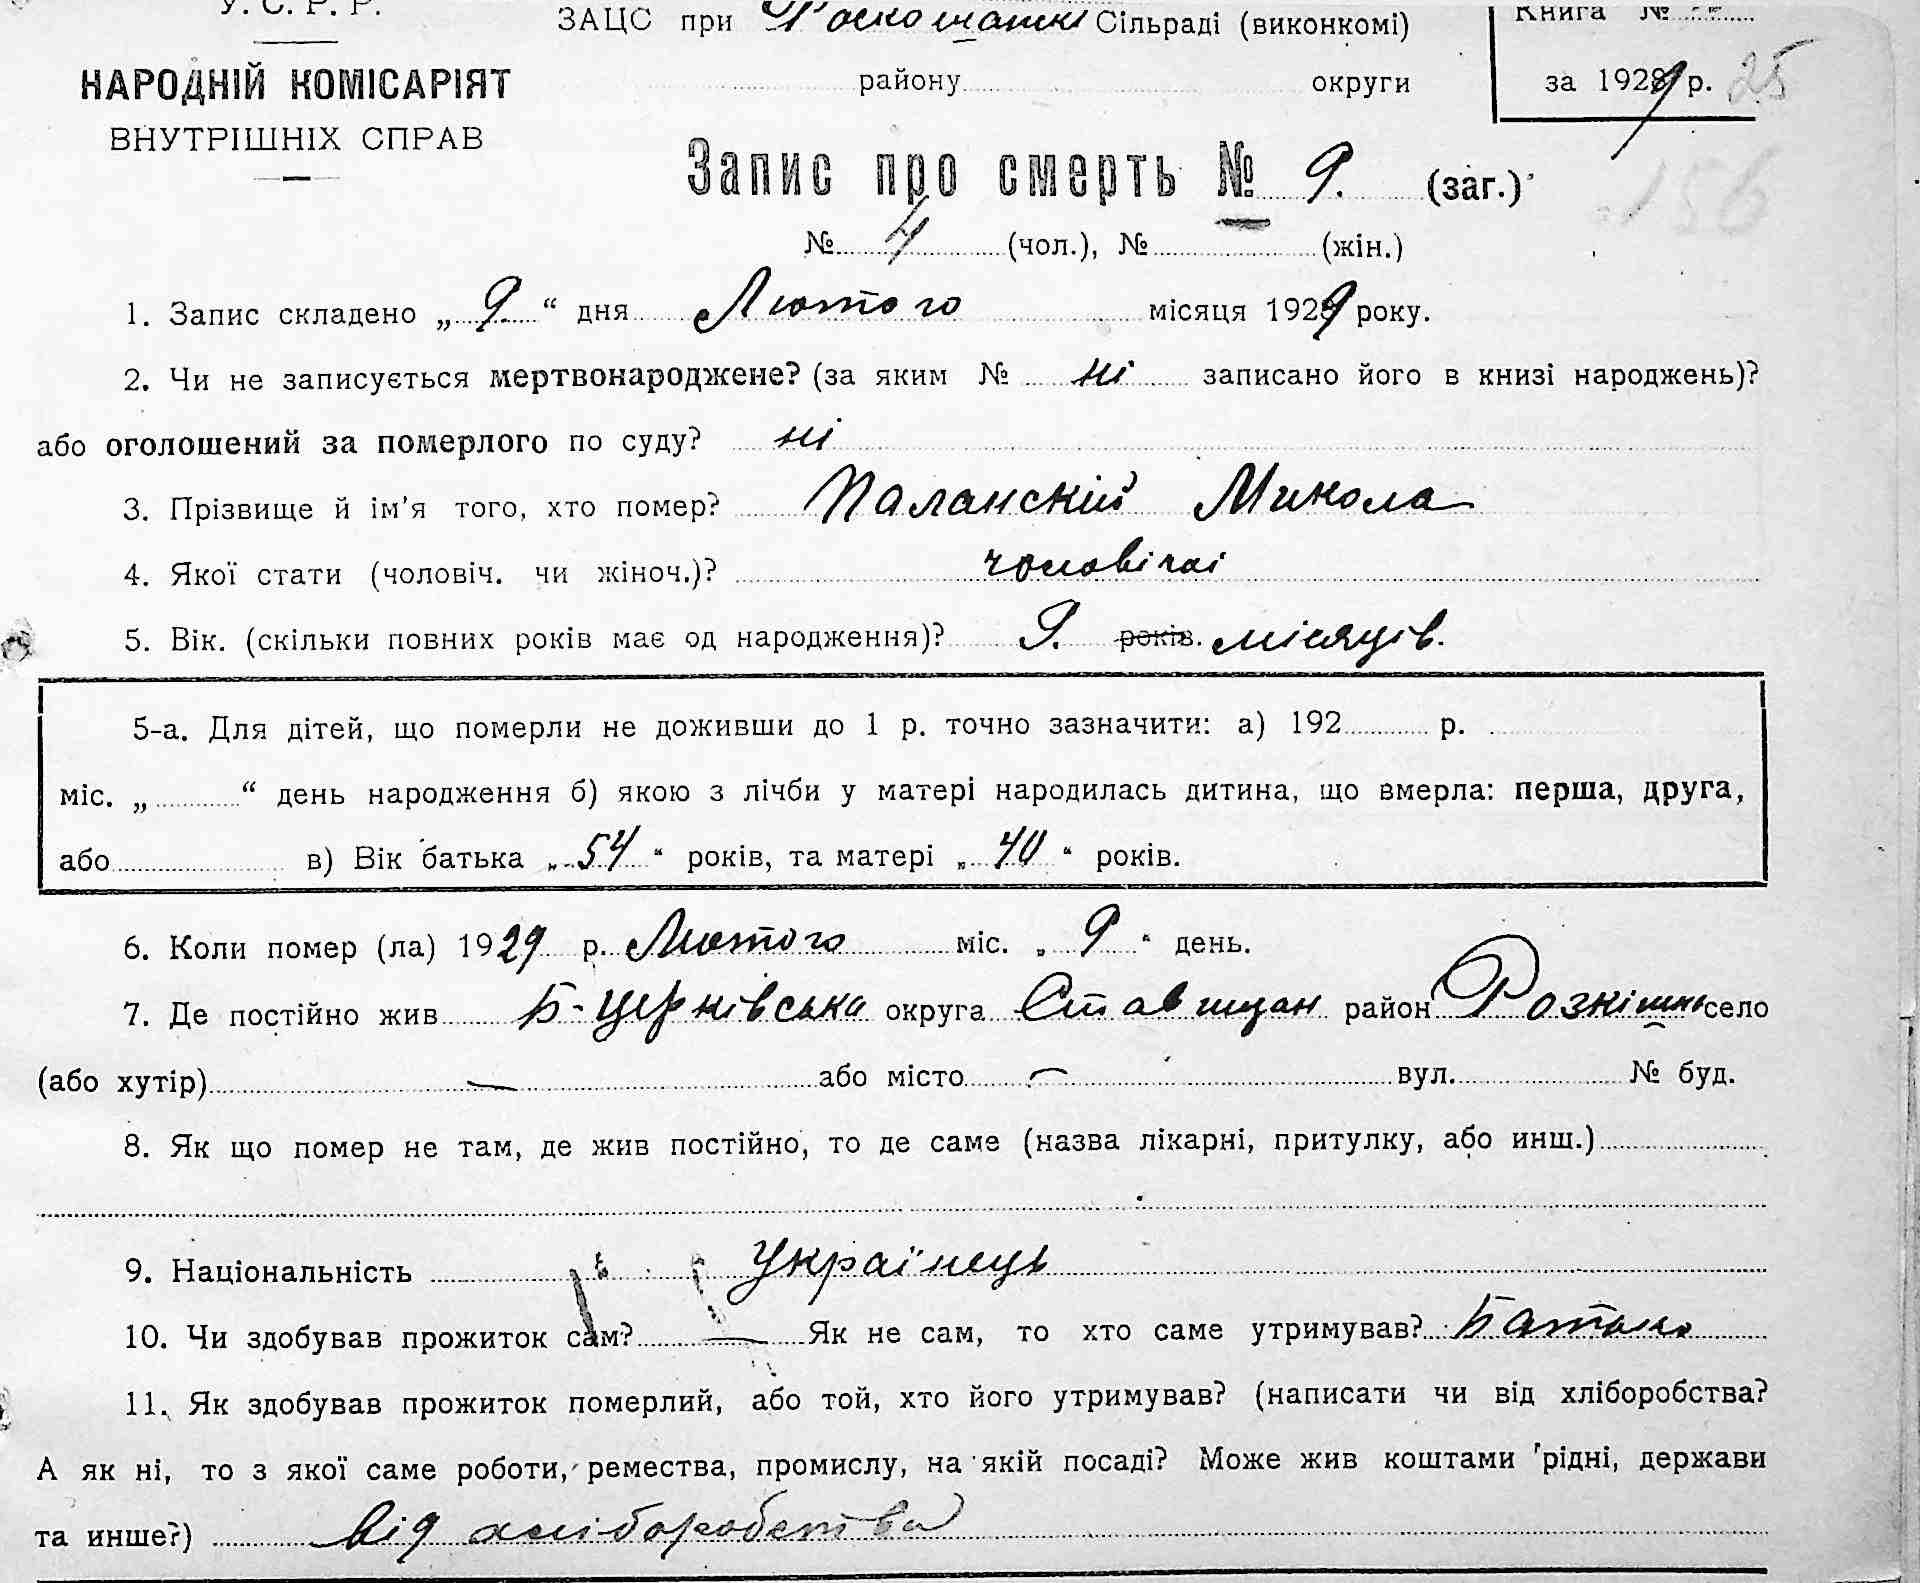 У. С. Р. Р.
НАРОДНІЙ КОМІСАРІЯТ
ВНУТРІШНІХ СПРАВ
ЗАЦС при Роскошанкі Сільраді (виконкомі)
району округи
Книга №
за 1929 р. 25
156
Запис про смерть № 9. (заг.)
№ 4 (чол.), № (жін.)
1. Запис складено „ 9 “ дня Лютого місяця 1929 року.
2. Чи не записується мертвонароджене? (за яким № ні записано його в книзі народжень)?
або оголошений за померлого по суду? ні
3. Прізвище й ім'я того, хто помер? Паланскій Микола
4. Якої стати (чоловіч. чи жіноч.)? чоловічаі
5. Вік. (скільки повних років має од народження)? 9. років. місяців.
5-а. Для дітей, що померли не доживши до 1 р. точно зазначити: а) 192 р.
міс. „ “ день народження б) якою з лічби у матері народилась дитина, що вмерла: перша, друга,
або в) Вік батька „ 54 “ років, та матері „ 40 “ років.
6. Коли помер (ла) 1929 р. Лютого міс. „ 9 “ день.
7. Де постійно жив Б-Церківська округа Ставищан район Розкішна село
(або хутір) — або місто — вул. № буд.
8. Як що помер не там, де жив постійно, то де саме (назва лікарні, притулку, або инш.)
9. Національність Українець
10. Чи здобував прожиток сам? — Як не сам, то хто саме утримував? Батько
11. Як здобував прожиток померлий, або той, хто його утримував? (написати чи від хліборобства?
А як ні, то з якої саме роботи, ремества, промислу, на якій посаді? Може жив коштами рідні, держави
та инше?) Від хліборобства